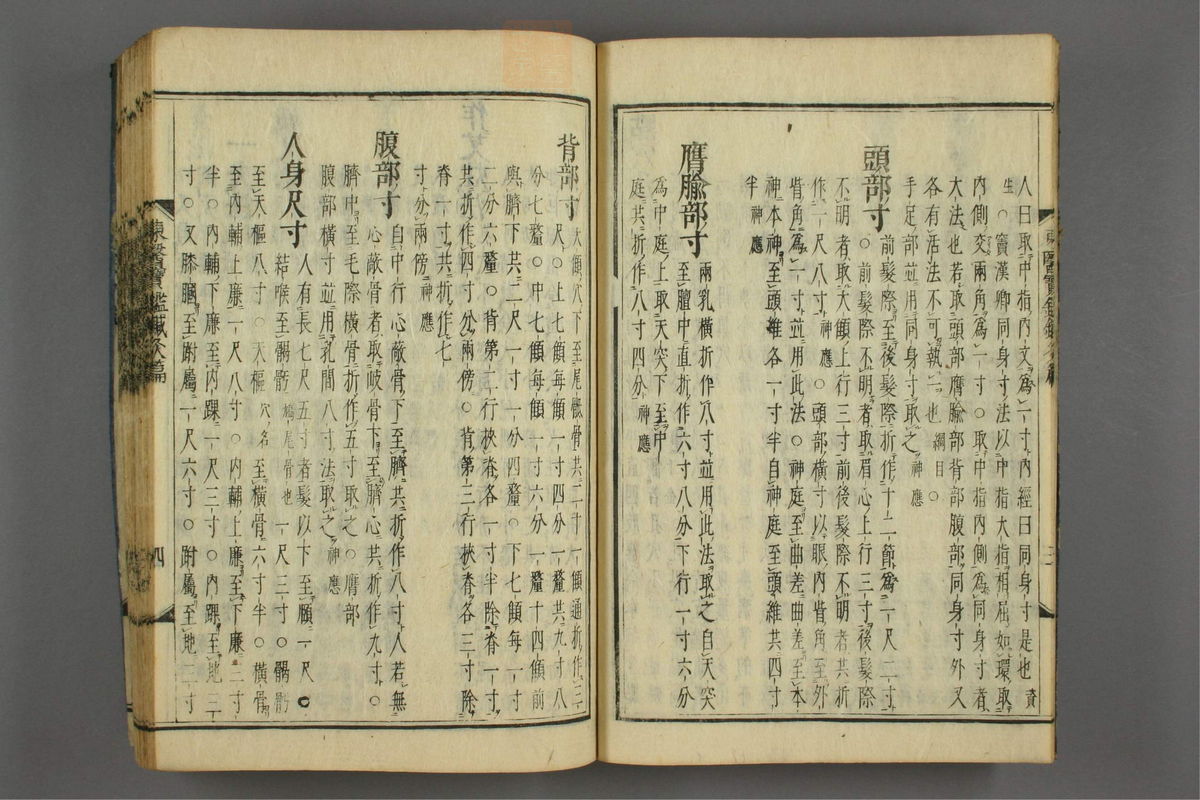 人曰取中指内文爲一寸内經曰同身寸是也資
生○竇漢卿同身寸法以中指大指相屈如環取
内側交兩角爲一寸○取中指内側爲同身寸者
大法也若取頭部膺腧部背部腹部同身寸外又
各有活法不可執一也綱目○
手足部並用同身寸取之神應
頭部寸前髮際至後髮際折作十二節爲一尺二寸
○前髮際不明者取眉心上行三寸後髮際
不明者取大顀上行三寸前後髮際不明者共折
作一尺八寸神應○頭部橫寸以眼内眥角至外
眥角爲一寸並用此法○神庭至曲差曲差至本
神本神至頭維各一寸半自神庭至頭維共四寸
半神應
膺腧部寸兩乳橫折作八寸並用此法取之自天突
至膻中直折作六寸八分下行一寸六分
爲中庭上取天突下至中
庭共折作八寸四分神應
背部寸大顀穴下至尾骶骨共二十一顀通折作三
尺○上七顀每顀一寸四分一釐共九寸八
分七釐○中七顀每顀一寸六分一釐十四顀前
與臍下共二尺一寸一分四釐○下七顀每一寸
二分六釐○背第二行挾脊各一寸半除脊一寸
共折作四寸分兩傍○背第三行挾脊各三寸除
脊一寸共折作七
寸分兩傍神應
腹部寸自中行心蔽骨下至臍共折作八寸人若無
心蔽骨者取岐骨下至臍心共折作九寸○
臍中至毛際橫骨折作五寸取之○膺部
腹部橫寸並用乳間八寸法取之神應
人身尺寸人有長七尺五寸者髮以下至頤一尺○
結喉至𩩲骬鳩尾骨也一尺三寸○𩩲骬
至天樞八寸○天樞穴名至橫骨六寸半○橫骨
至内輔上廉一尺八寸○内輔上廉至下廉三寸
半○内輔下廉至内踝一尺三寸○内踝至地三
寸○又膝膕至跗屬一尺六寸○跗屬至地三寸
東醫寶鑑鍼灸篇
四